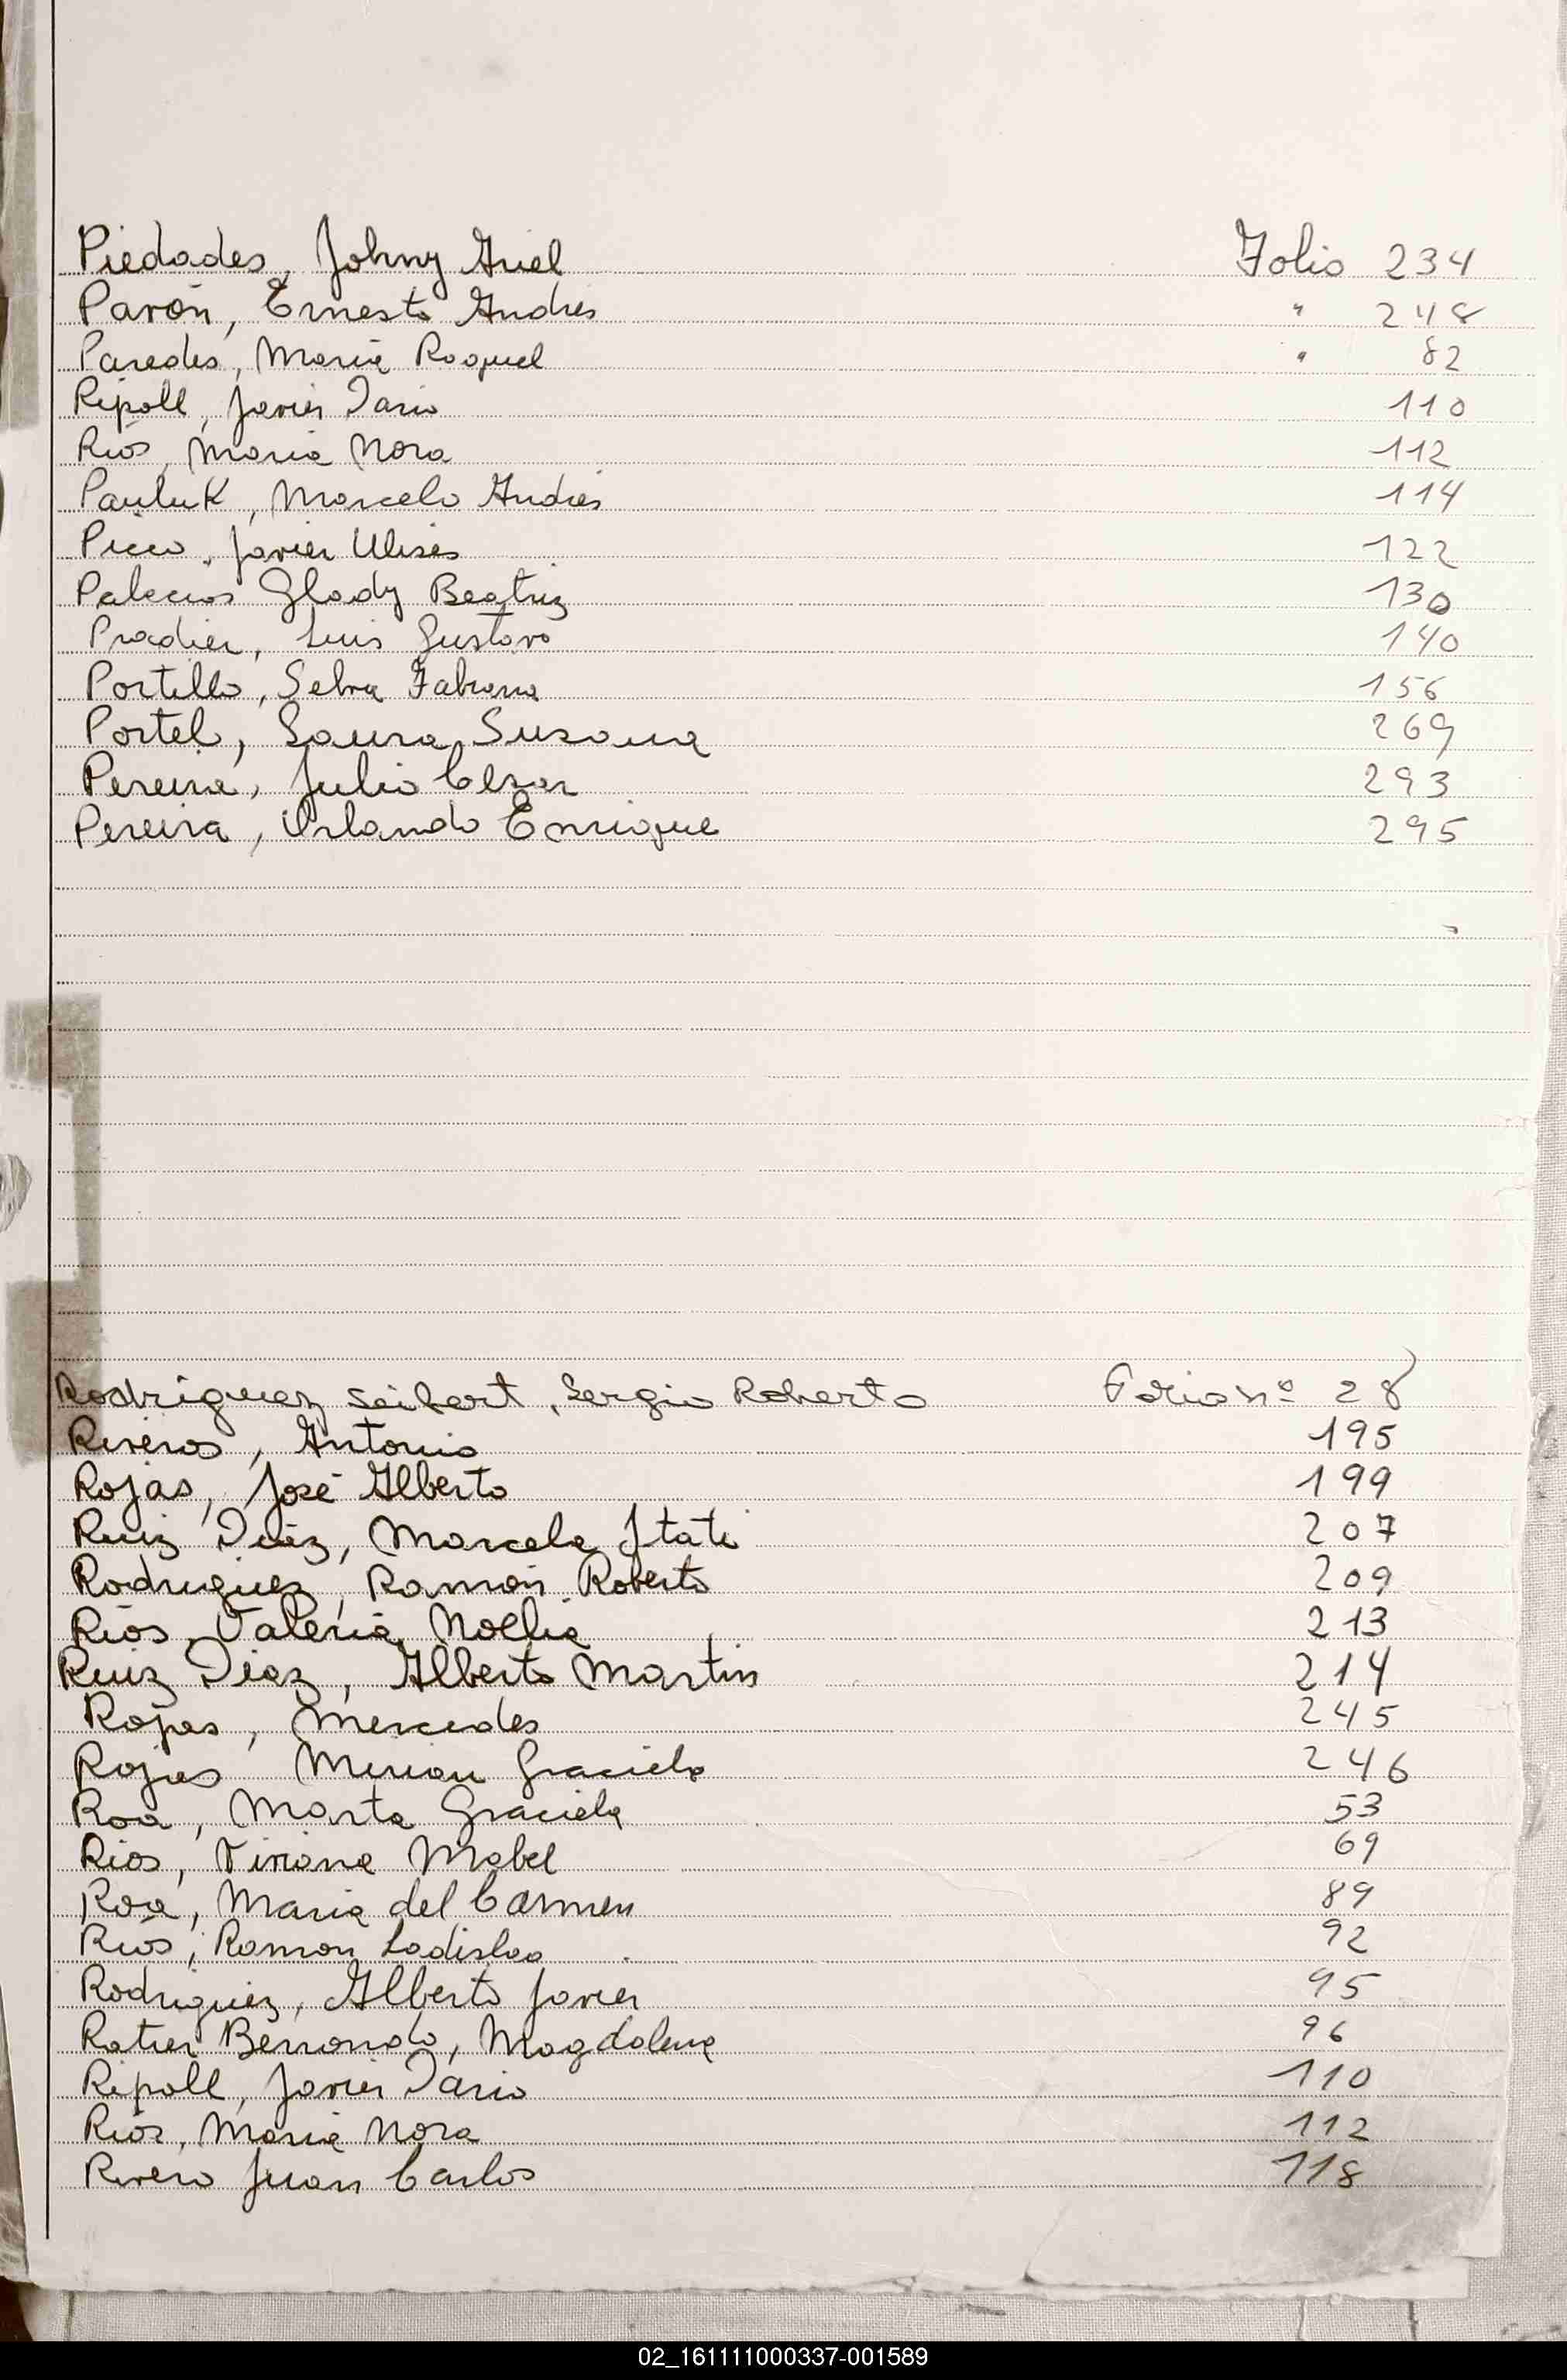 Piedades, Johny Ariel Folio 234
Pavón, Ernesto Andrés " 248
Paredes, María Raquel " 82
Ripoll, Javier Dario 110
Ríos, María Nora 112
Pauluk, Marcelo Andrés 114
Picco, Javier Ulises 122
Palacios Glady Beatriz 130
Pradier, Luis Gustavo 140
Portillo, Selva Fabiana 156
Portel, Laura Susana 269
Pereira, Julio Cesar 293
Pereira, Orlando Enrique 295
Rodriguez Seibert, Sergio Roberto Folio nº 28
Riveros, Antonio 195
Rojas, José Alberto 199
Ruiz Diaz, Marcela Itati 207
Rodriguez, Ramón Roberto 209
Ríos, Valeria Noelia 213
Ruiz Diaz, Alberto Martín 214
Rojas, Mercedes 245
Rojas Mirian Graciela 246
Roa, Marta Graciela 53
Rios, Viviana Mabel 69
Roa, María del Carmen 89
Ríos, Ramon Ladislao 92
Rodriguez, Alberto Javier 95
Ratier Berrondo, Magdalena 96
Ripoll, Javier Dario 110
Ríos, María Nora 112
Rivero Juan Carlos 118
02_161111000337-001589